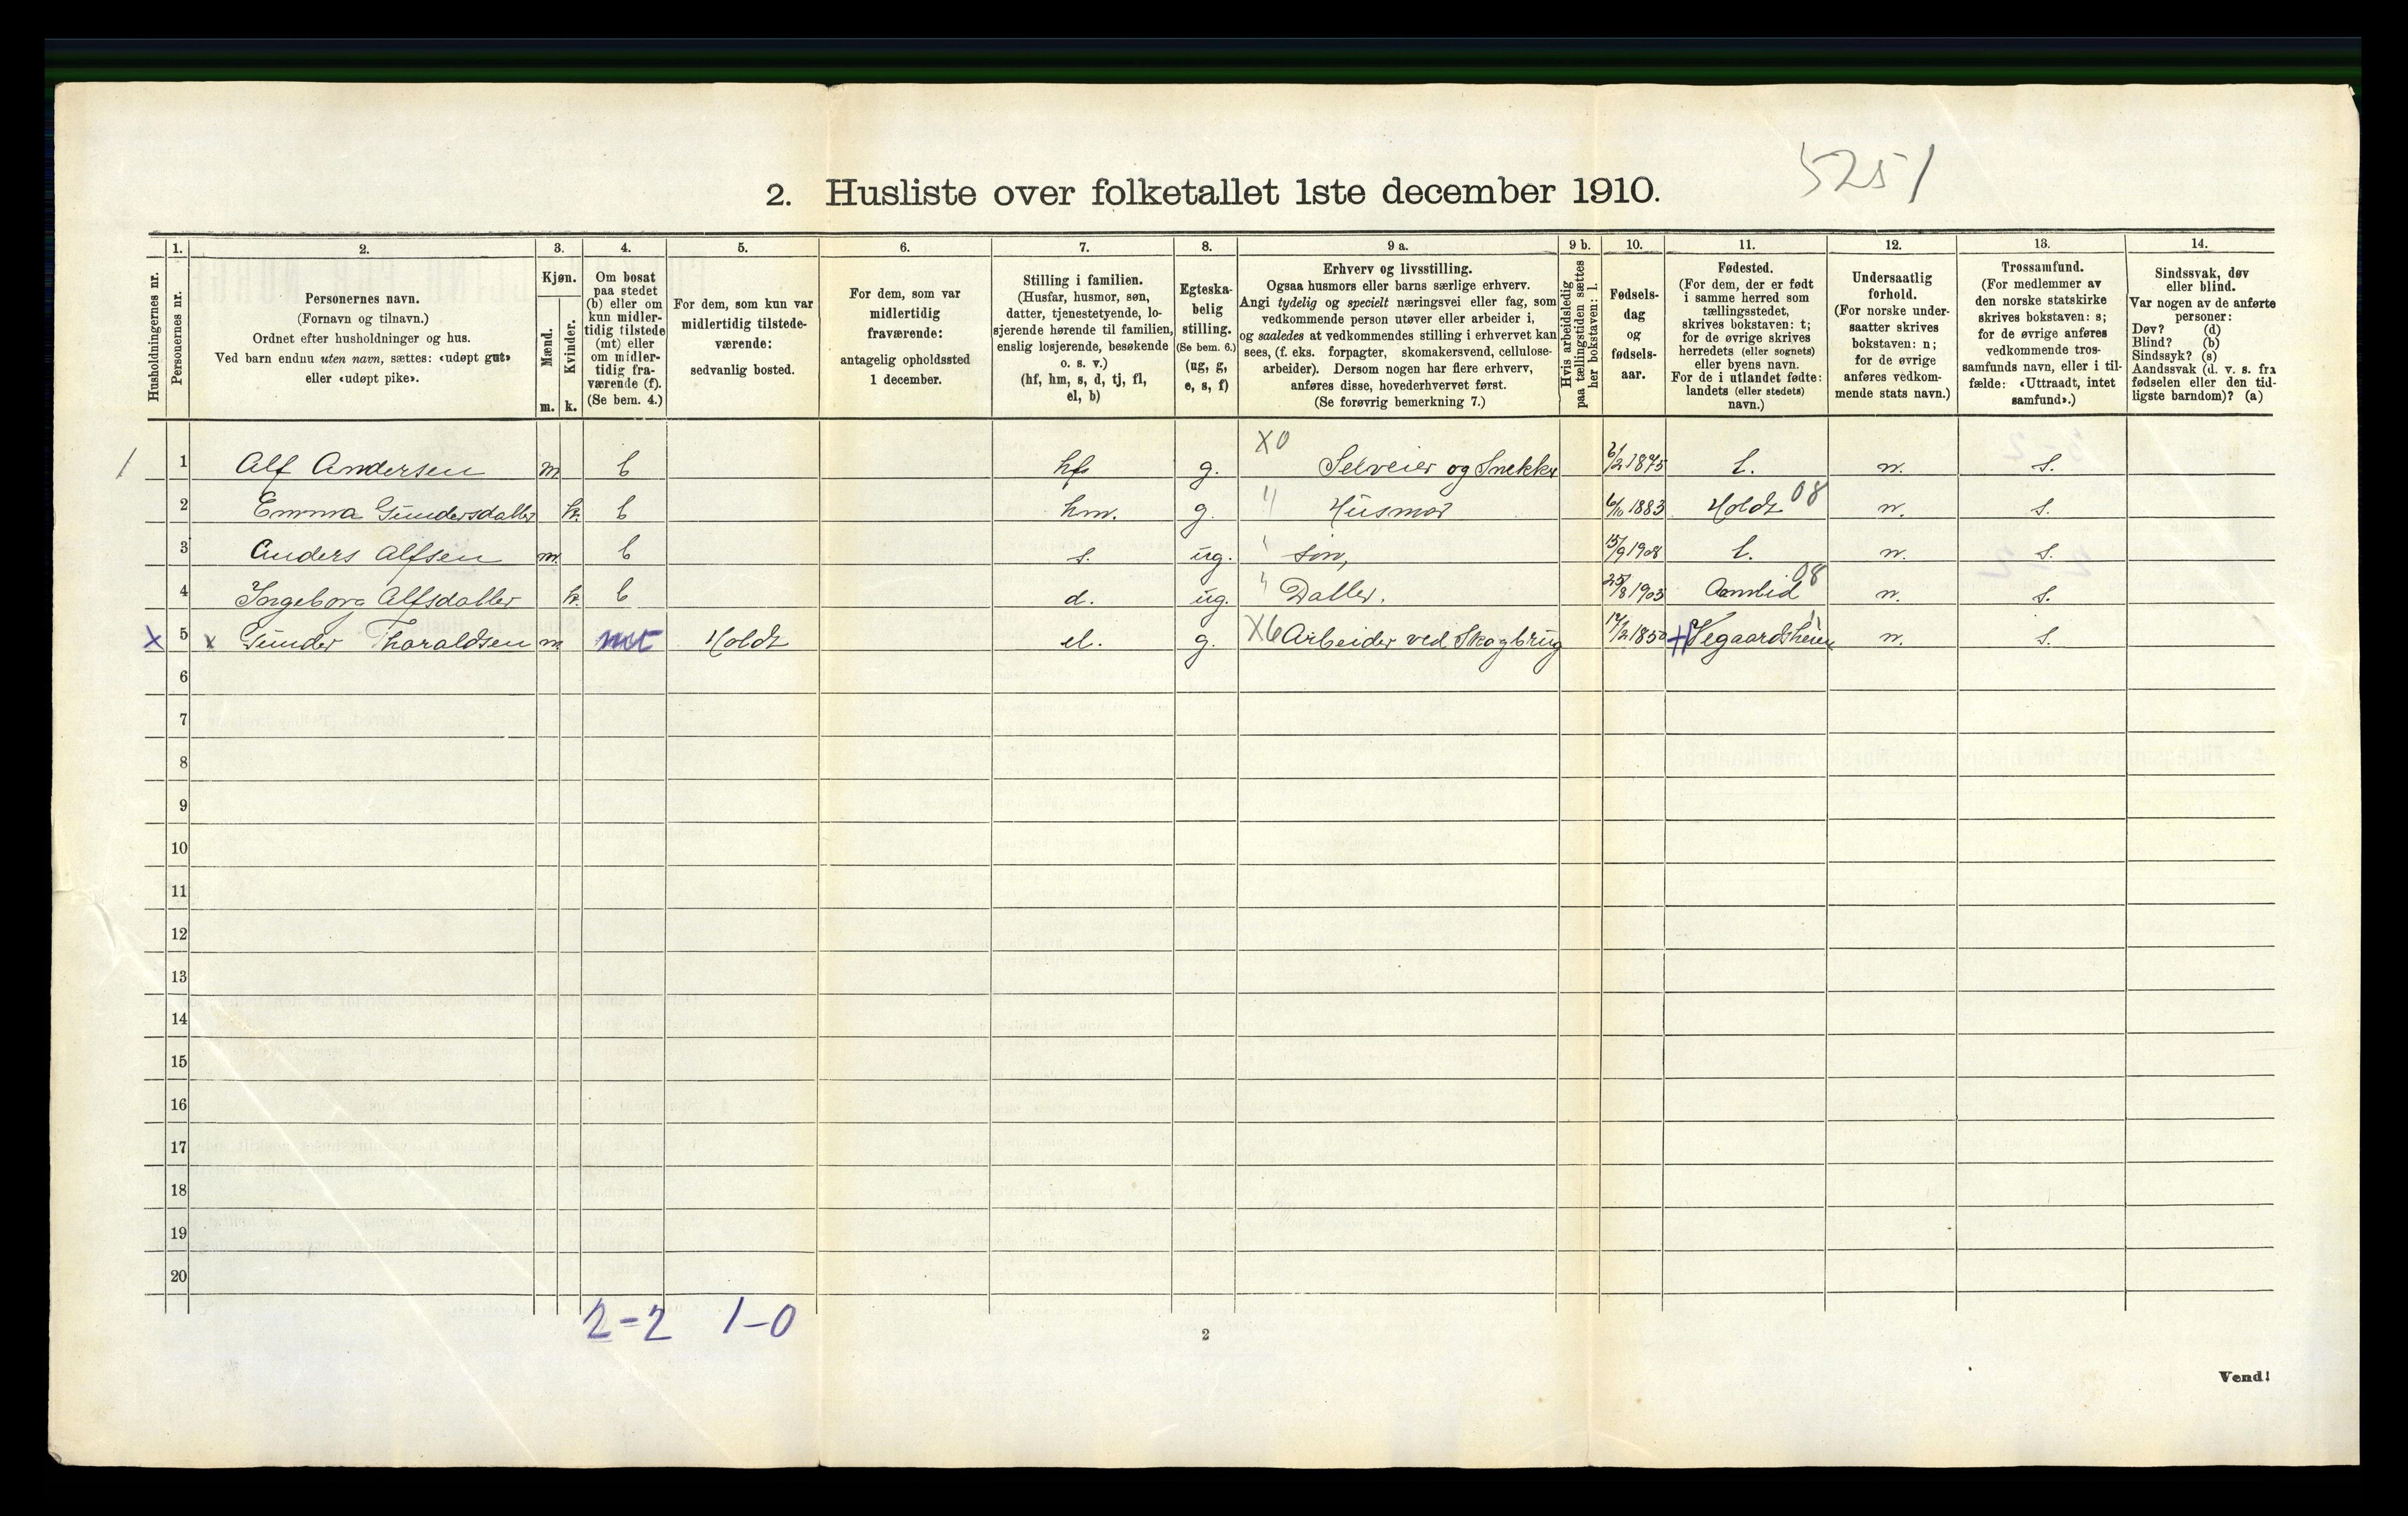 5251
2. Husliste over folketallet 1ste december 1910.
Husholdningernes nr.
1.
Personernes nr.
2.
Personernes navn.
(Fornavn og tilnavn.)
Ordnet efter husholdninger og hus.
Ved barn endnu uten navn, sættes: «udøpt gut»
eller «udøpt pike».
3.
Kjøn.
Mænd.
Kvinder.
m. k.
4.
Om bosat
paa stedet
(b) eller om
kun midler-
tidig tilstede
(mt) eller
om midler-
tidig fra-
værende (f).
(Se bem. 4.)
5.
For dem, som kun var
midlertidig tilstede-
værende:
sedvanlig bosted.
6.
For dem, som var
midlertidig
fraværende:
antagelig opholdssted
1 december.
7.
Stilling i familien.
(Husfar, husmor, søn,
datter, tjenestetyende, lo-
sjerende hørende til familien,
enslig losjerende, besøkende
o. s. v.)
(hf, hm, s, d, tj, fl,
el, b)
8.
Egteska-
belig
stilling.
(Se bem. 6.)
(ug, g,
e, s, f)
9 a.
Erhverv og livsstilling.
Ogsaa husmors eller barns særlige erhverv.
Angi tydelig og specielt næringsvei eller fag, som
vedkommende person utøver eller arbeider i,
og saaledes at vedkommendes stilling i erhvervet kan
sees, (f. eks. forpagter, skomakersvend, cellulose-
arbeider). Dersom nogen har flere erhverv,
anføres disse, hovederhvervet først.
(Se forøvrig bemerkning 7.)
9 b.
Hvis arbeidsledig
paa tællingstiden sættes
her bokstaven: l.
10.
Fødsels-
dag
og
fødsels-
aar.
11.
Fødested.
(For dem, der er født
i samme herred som
tællingsstedet,
skrives bokstaven: t;
for de øvrige skrives
herredets (eller sognets)
eller byens navn.
For de i utlandet fødte:
landets (eller stedets)
navn.)
12.
Undersaatlig
forhold.
(For norske under-
saatter skrives
bokstaven: n;
for de øvrige
anføres vedkom-
mende stats navn.)
13.
Trossamfund.
(For medlemmer av
den norske statskirke
skrives bokstaven: s;
for de øvrige anføres
vedkommende tros-
samfunds navn, eller i til-
fælde: «Uttraadt, intet
samfund».)
14.
Sindssvak, døv
eller blind.
Var nogen av de anførte
personer:
Døv? (d)
Blind? (b)
Sindssyk? (s)
Aandssvak (d. v. s. fra
fødselen eller den tid-
ligste barndom)? (a)
1 1 Alf Andersen m b hf g. X0 Selveier og Snekker 6/2 1875 t. n. s.
2 Emma Gundersdatter k. b hm. g. " Husmor 6/10 1883 Holdt 08 n. s.
3 Anders Alfsen m. b s. ug. " søn, 15/9 1908 t. n. s.
4 Ingeborg Alfsdatter k. b d. ug. " Datter. 25/8 1903 Aamlid 08 n. s.
X 5 x Gunder Tharaldsen m mt Holdt el. g. X6 Arbeider ved Skogbrug 17/2 1850 + Vegaardsheien n. s.
6
7
8
9
10
11
12
13
14
15
16
17
18
19
20
2-2 1-0
2
Vend!